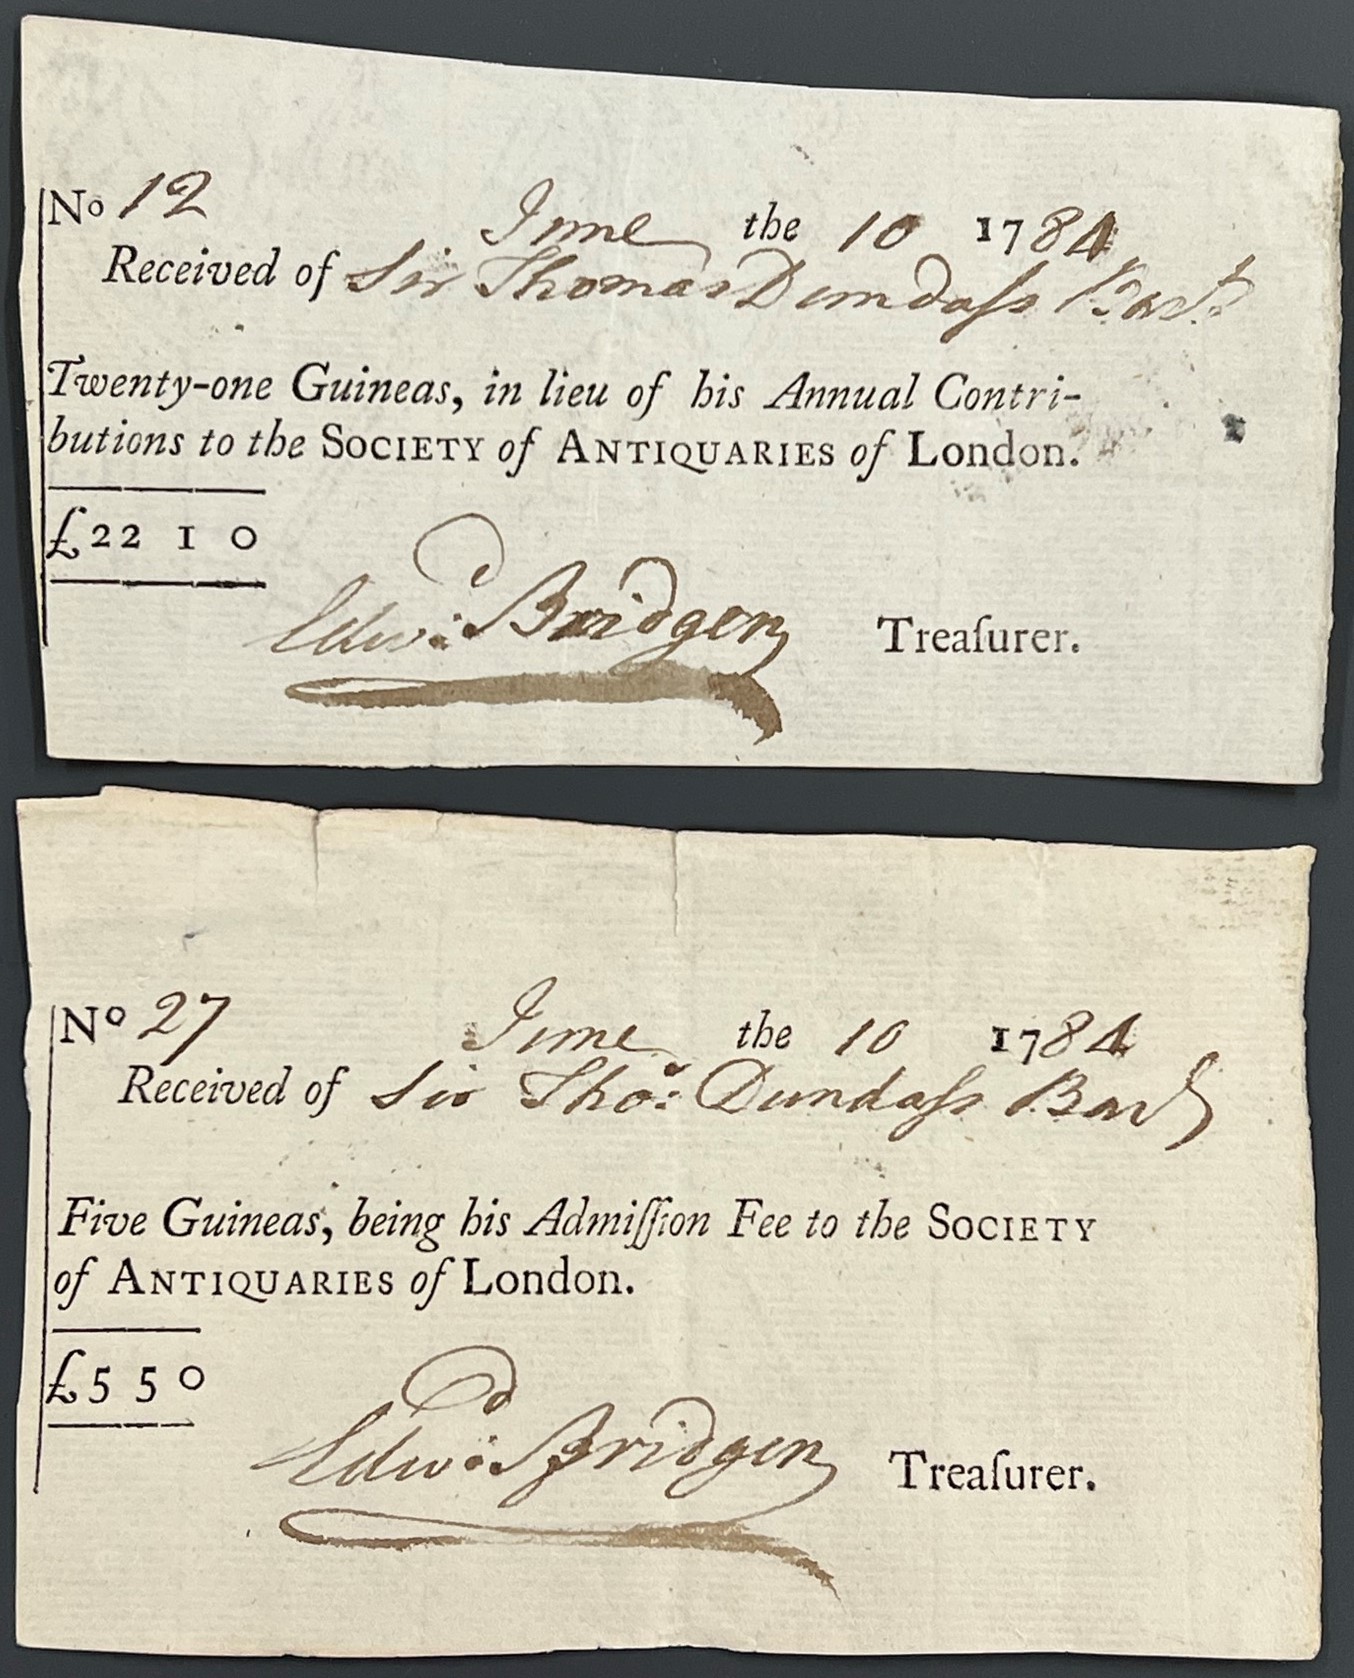 No 12
June the 10 1784
Received of Sir Thomas Dundaſs Bart.
Twenty-one Guineas, in lieu of his Annual Contri-
butions to the SOCIETY of ANTIQUARIES of London.
£22 1 0
Edwd: Bridgen Treaſurer.
No 27
June the 10 1784
Received of Sir Thos: Dundaſs Bart
Five Guineas, being his Admiſſion Fee to the SOCIETY
of ANTIQUARIES of London.
£5 5 0
Edwd: Bridgen Treaſurer.